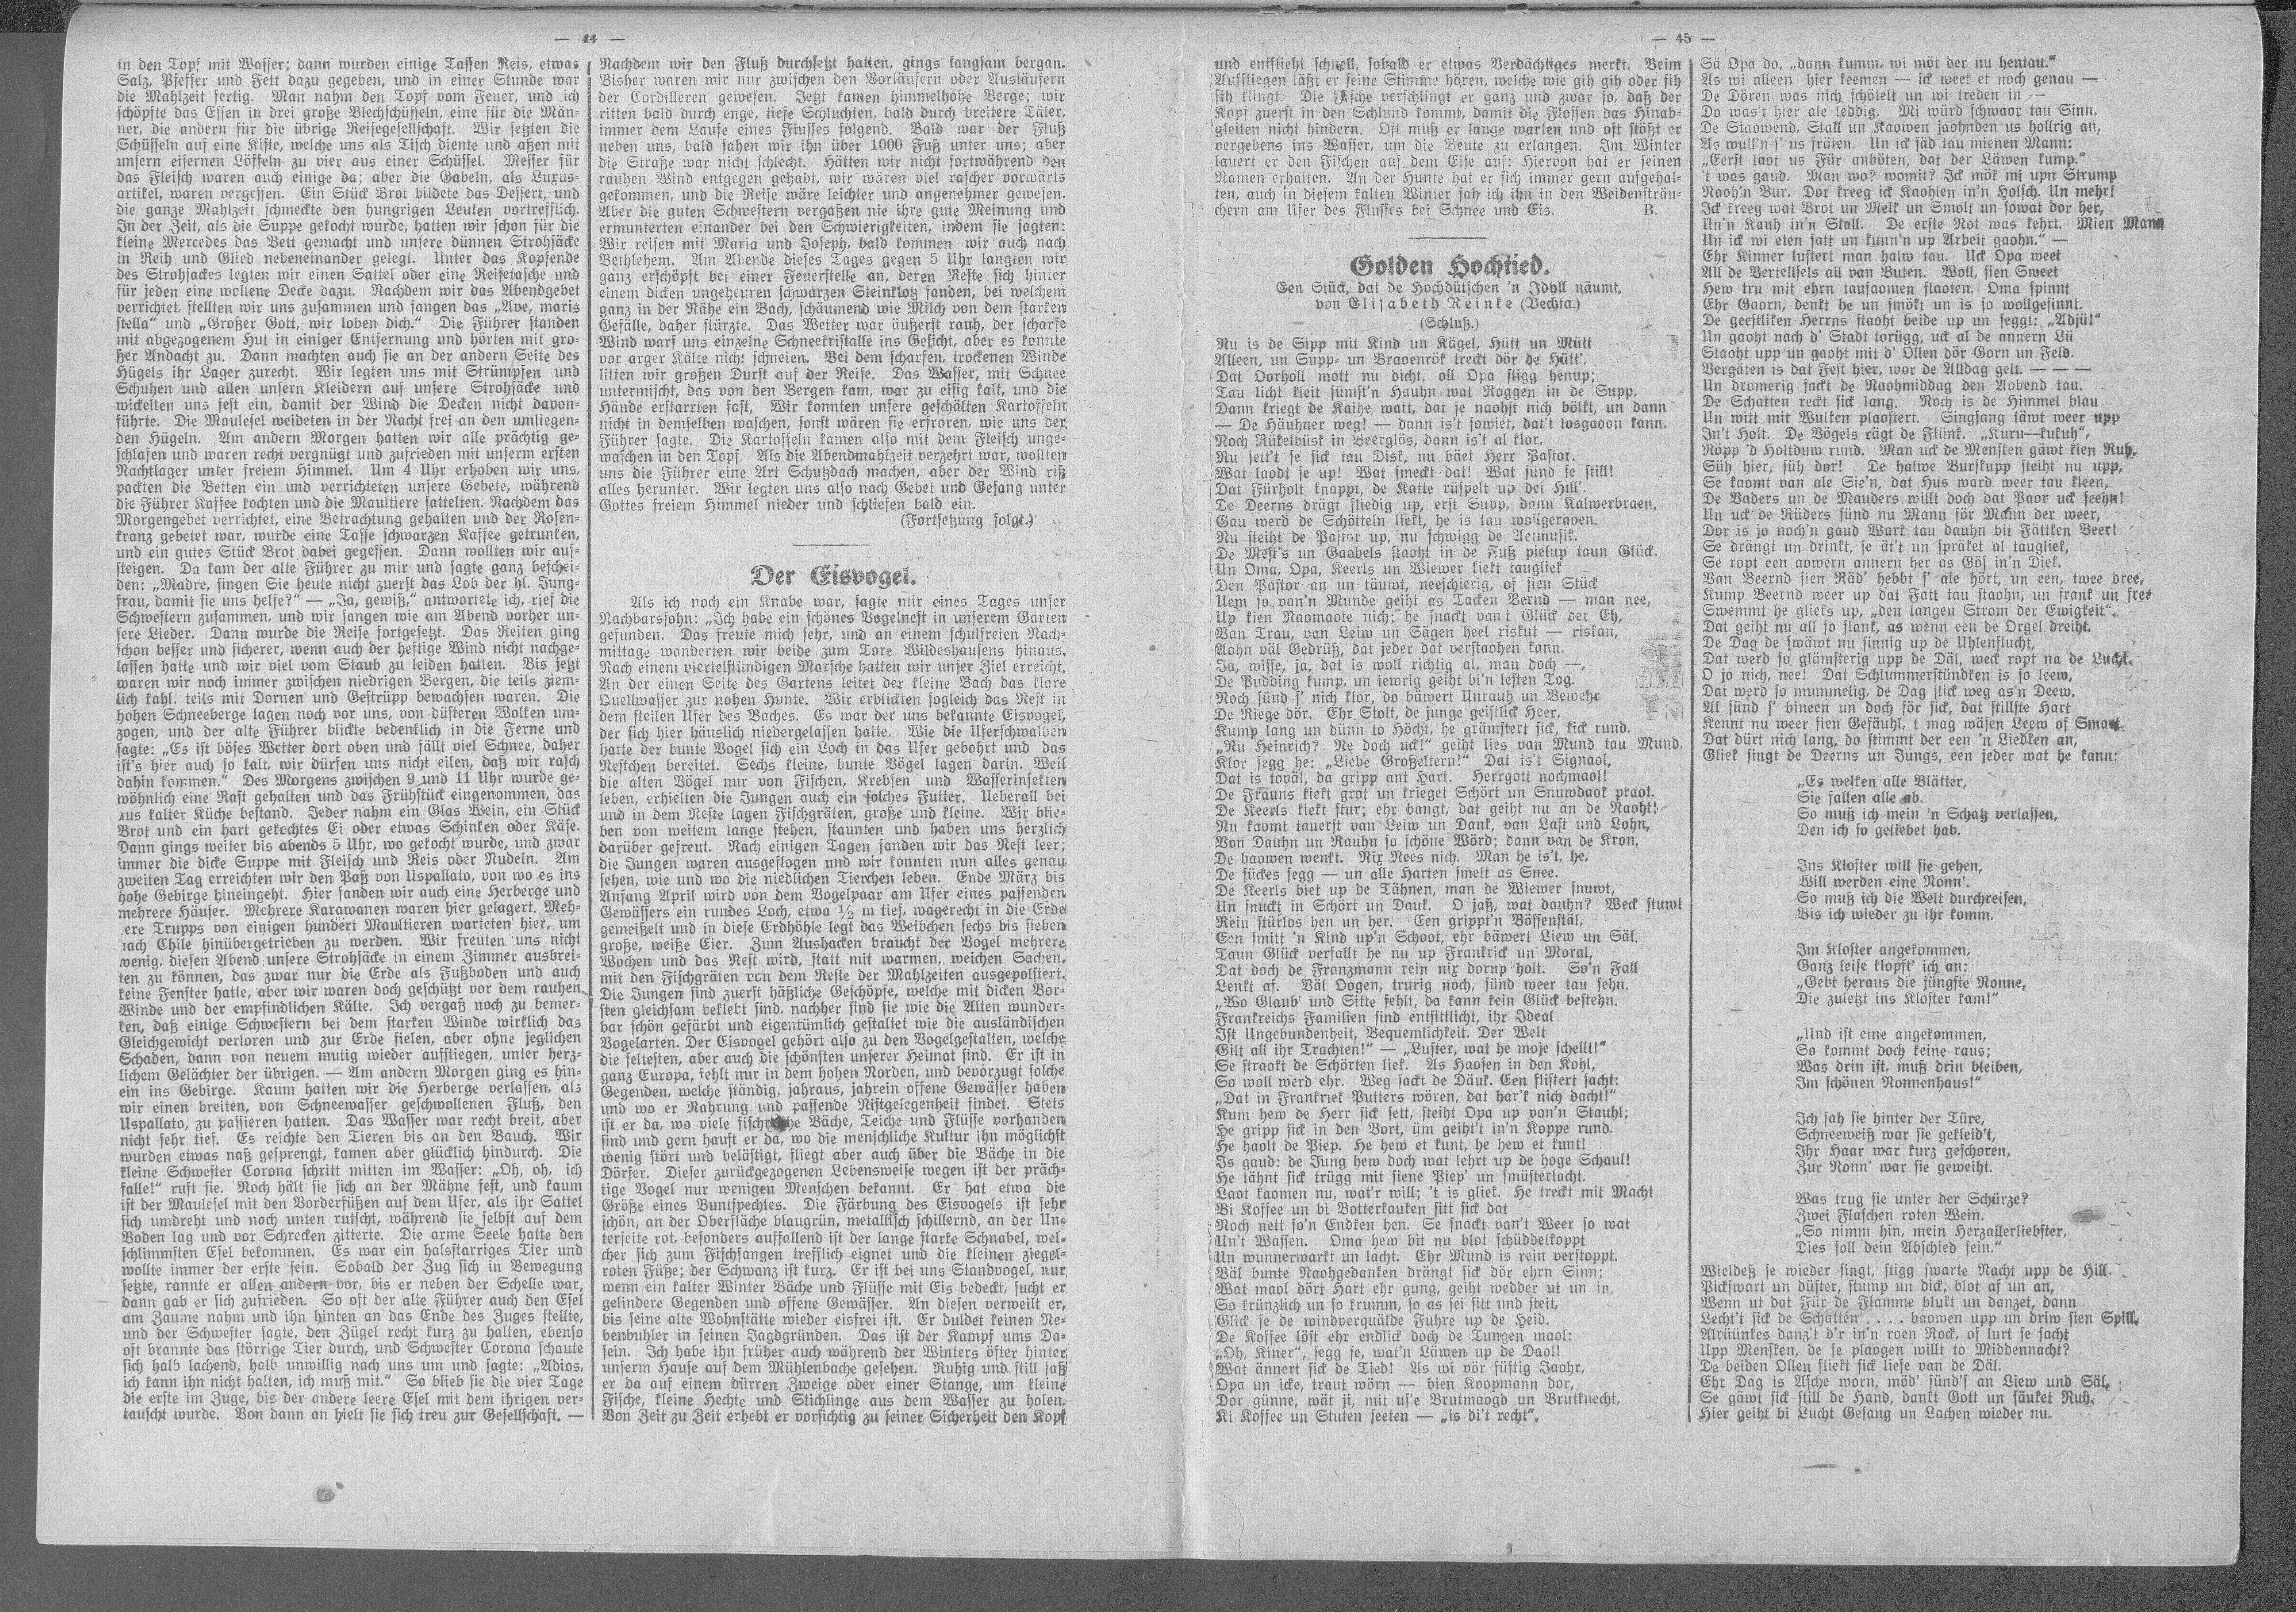 — 44 —
in den Topf mit Wasser; dann wurden einige Tassen Reis, etwas
Salz, Pfeffer und Fett dazu gegeben, und in einer Stunde war
die Mahlzeit fertig. Man nahm den Topf vom Feuer, und ich
schöpfte das Essen in drei große Blechschüsseln, eine für die Män-
ner, die andern für die übrige Reisegesellschaft. Wir setzten die
Schüsseln auf eine Kiste, welche uns als Tisch diente und aßen mit
unsern eisernen Löffeln zu vier aus einer Schüssel. Messer für
das Fleisch waren auch einige da; aber die Gabeln, als Luxus-
artikel, waren vergessen. Ein Stück Brot bildete das Dessert, und
die ganze Mahlzeit schmeckte den hungrigen Leuten vortrefflich.
In der Zeit, als die Suppe gekocht wurde, hatten wir schon für die
kleine Mercedes das Bett gemacht und unsere dünnen Strohsäcke
in Reih und Glied nebeneinander gelegt. Unter das Kopfende
des Strohsackes legten wir einen Sattel oder eine Reisetasche und
für jeden eine wollene Decke dazu. Nachdem wir das Abendgebet
verrichtet, stellten wir uns zusammen und sangen das „Ave, maris
stella“ und „Großer Gott, wir loben dich.“ Die Führer standen
mit abgezogenem Hut in einiger Entfernung und hörten mit gro-
ßer Andacht zu. Dann machten auch sie an der andern Seite des
Hügels ihr Lager zurecht. Wir legten uns mit Strümpfen und
Schuhen und allen unsern Kleidern auf unsere Strohsäcke und
wickelten uns fest ein, damit der Wind die Decken nicht davon-
führte. Die Maulesel weideten in der Nacht frei an den umliegen-
den Hügeln. Am andern Morgen hatten wir alle prächtig ge-
schlafen und waren recht vergnügt und zufrieden mit unserm ersten
Nachtlager unter freiem Himmel. Um 4 Uhr erhoben wir uns,
packten die Betten ein und verrichteten unsere Gebete, während
die Führer Kaffee kochten und die Maultiere sattelten. Nachdem das
Morgengebet verrichtet, eine Betrachtung gehalten und der Rosen-
kranz gebetet war, wurde eine Tasse schwarzen Kaffee getrunken,
und ein gutes Stück Brot dabei gegessen. Dann wollten wir auf-
steigen. Da kam der alte Führer zu mir und sagte ganz beschei-
den: „Madre, singen Sie heute nicht zuerst das Lob der hl. Jung-
frau, damit sie uns helfe?“ — „Ja, gewiß,“ antwortete ich, rief die
Schwestern zusammen, und wir sangen wie am Abend vorher un-
sere Lieder. Dann wurde die Reise fortgesetzt. Das Reiten ging
schon besser und sicherer, wenn auch der heftige Wind nicht nachge-
lassen hatte und wir viel vom Staub zu leiden hatten. Bis jetzt
waren wir noch immer zwischen niedrigen Bergen, die teils ziem-
lich kahl, teils mit Dornen und Gestrüpp bewachsen waren. Die
hohen Schneeberge lagen noch vor uns, von düsteren Wolken um-
zogen, und der alte Führer blickte bedenklich in die Ferne und
sagte: „Es ist böses Wetter dort oben und fällt viel Schnee, daher
ist's hier auch so kalt, wir dürfen uns nicht eilen, daß wir rasch
dahin kommen.“ Des Morgens zwischen 9 und 11 Uhr wurde ge-
wöhnlich eine Rast gehalten und das Frühstück eingenommen, das
aus kalter Küche bestand. Jeder nahm ein Glas Wein, ein Stück
Brot und ein hart gekochtes Ei oder etwas Schinken oder Käse.
Dann gings weiter bis abends 5 Uhr, wo gekocht wurde, und zwar
immer die dicke Suppe mit Fleisch und Reis oder Nudeln. Am
zweiten Tag erreichten wir den Paß von Uspallato, von wo es ins
hohe Gebirge hineingeht. Hier fanden wir auch eine Herberge und
mehrere Häuser. Mehrere Karawanen waren hier gelagert. Meh-
rere Trupps von einigen hundert Maultieren warteten hier, um
nach Chile hinübergetrieben zu werden. Wir freuten uns nicht
wenig, diesen Abend unsere Strohsäcke in einem Zimmer ausbrei-
ten zu können, das zwar nur die Erde als Fußboden und auch
keine Fenster hatte, aber wir waren doch geschützt vor dem rauhen
Winde und der empfindlichen Kälte. Ich vergaß noch zu bemer-
ken, daß einige Schwestern bei dem starken Winde wirklich das
Gleichgewicht verloren und zur Erde fielen, aber ohne jeglichen
Schaden, dann von neuem mutig wieder aufstiegen, unter herz-
lichem Gelächter der übrigen. — Am andern Morgen ging es hin-
ein ins Gebirge. Kaum hatten wir die Herberge verlassen, als
wir einen breiten, von Schneewasser geschwollenen Fluß, den
Uspallato, zu passieren hatten. Das Wasser war recht breit, aber
nicht sehr tief. Es reichte den Tieren bis an den Bauch. Wir
wurden etwas naß gesprengt, kamen aber glücklich hindurch. Die
kleine Schwester Corona schritt mitten im Wasser: „Oh, oh, ich
falle!“ ruft sie. Noch hält sie sich an der Mähne fest, und kaum
ist der Maulesel mit den Vorderfüßen auf dem Ufer, als ihr Sattel
sich umdreht und nach unten rutscht, während sie selbst auf dem
Boden lag und vor Schrecken zitterte. Die arme Seele hatte den
schlimmsten Esel bekommen. Es war ein halsstarriges Tier und
wollte immer der erste sein. Sobald der Zug sich in Bewegung
setzte, rannte er allen andern vor, bis er neben der Schelle war,
dann gab er sich zufrieden. So oft der alte Führer auch den Esel
am Zaume nahm und ihn hinten an das Ende des Zuges stellte,
und der Schwester sagte, den Zügel recht kurz zu halten, ebenso
oft brannte das störrige Tier durch, und Schwester Corona schaute
sich halb lachend, halb unwillig nach uns um und sagte: „Adios,
ich kann ihn nicht halten, ich muß mit.“ So blieb sie die vier Tage
die erste im Zuge, bis der andere leere Esel mit dem ihrigen ver-
tauscht wurde. Von dann an hielt sie sich treu zur Gesellschaft. —
Nachdem wir den Fluß durchsetzt hatten, gings langsam bergan.
Bisher waren wir nur zwischen den Vorläufern oder Ausläufern
der Cordilleren gewesen. Jetzt kamen himmelhohe Berge; wir
ritten bald durch enge, tiefe Schluchten, bald durch breitere Täler,
immer dem Laufe eines Flusses folgend. Bald war der Fluß
neben uns, bald sahen wir ihn über 1000 Fuß unter uns; aber
die Straße war nicht schlecht. Hätten wir nicht fortwährend den
rauhen Wind entgegen gehabt, wir wären viel rascher vorwärts
gekommen, und die Reise wäre leichter und angenehmer gewesen.
Aber die guten Schwestern vergaßen nie ihre gute Meinung und
ermunterten einander bei den Schwierigkeiten, indem sie sagten:
Wir reisen mit Maria und Joseph, bald kommen wir auch nach
Bethlehem. Am Abende dieses Tages gegen 5 Uhr langten wir
ganz erschöpft bei einer Feuerstelle an, deren Reste sich hinter
einem dicken ungeheuren schwarzen Steinklotz fanden, bei welchem
ganz in der Nähe ein Bach, schäumend wie Milch von dem starken
Gefälle, daher stürzte. Das Wetter war äußerst rauh, der scharfe
Wind warf uns einzelne Schneekristalle ins Gesicht, aber es konnte
vor arger Kälte nicht schneien. Bei dem scharfen, trockenen Winde
litten wir großen Durst auf der Reise. Das Wasser, mit Schnee
untermischt, das von den Bergen kam, war zu eisig kalt, und die
Hände erstarrten fast. Wir konnten unsere geschälten Kartoffeln
nicht in demselben waschen, sonst wären sie erfroren, wie uns der
Führer sagte. Die Kartoffeln kamen also mit dem Fleisch unge-
waschen in den Topf. Als die Abendmahlzeit verzehrt war, wollten
uns die Führer eine Art Schutzdach machen, aber der Wind riß
alles herunter. Wir legten uns also nach Gebet und Gesang unter
Gottes freiem Himmel nieder und schliefen bald ein.
(Fortsetzung folgt.)
Der Eisvogel.
Als ich noch ein Knabe war, sagte mir eines Tages unser
Nachbarssohn: „Ich habe ein schönes Vogelnest in unserem Garten
gefunden. Das freute mich sehr, und an einem schulfreien Nach-
mittage wanderten wir beide zum Tore Wildeshausens hinaus.
Nach einem viertelstündigen Marsche hatten wir unser Ziel erreicht.
An der einen Seite des Gartens leitet der kleine Bach das klare
Quellwasser zur nahen Hunte. Wir erblickten sogleich das Nest in
dem steilen Ufer des Baches. Es war der uns bekannte Eisvogel,
der sich hier häuslich niedergelassen hatte. Wie die Uferschwalben
hatte der bunte Vogel sich ein Loch in das Ufer gebohrt und das
Nestchen bereitet. Sechs kleine, bunte Vögel lagen darin. Weil
die alten Vögel nur von Fischen, Krebsen und Wasserinsekten
leben, erhielten die Jungen auch ein solches Futter. Ueberall bei
und in dem Neste lagen Fischgräten, große und kleine. Wir blie-
ben von weitem lange stehen, staunten und haben uns herzlich
darüber gefreut. Nach einigen Tagen fanden wir das Nest leer;
die Jungen waren ausgeflogen und wir konnten nun alles genau
sehen, wie und wo die niedlichen Tierchen leben. Ende März bis
Anfang April wird von dem Vogelpaar am Ufer eines passenden
Gewässers ein rundes Loch, etwa ½ m tief, wagerecht in die Erde
gemeißelt und in diese Erdhöhle legt das Weibchen sechs bis sieben
große, weiße Eier. Zum Aushacken braucht der Vogel mehrere
Wochen und das Nest wird, statt mit warmen, weichen Sachen,
mit den Fischgräten von dem Reste der Mahlzeiten ausgepolstert.
Die Jungen sind zuerst häßliche Geschöpfe, welche mit dicken Bor-
sten gleichsam beklebt sind, nachher sind sie wie die Alten wunder-
bar schön gefärbt und eigentümlich gestaltet wie die ausländischen
Vogelarten. Der Eisvogel gehört also zu den Vogelgestalten, welche
die seltesten, aber auch die schönsten unserer Heimat sind. Er ist in
ganz Europa, fehlt nur in dem hohen Norden, und bevorzugt solche
Gegenden, welche ständig, jahraus, jahrein offene Gewässer haben
und wo er Nahrung und passende Nistgelegenheit findet. Stets
ist er da, wo viele fischreiche Bäche, Teiche und Flüsse vorhanden
sind und gern haust er da, wo die menschliche Kultur ihn möglichst
wenig stört und belästigt, fliegt aber auch über die Bäche in die
Dörfer. Dieser zurückgezogenen Lebensweise wegen ist der präch-
tige Vogel nur wenigen Menschen bekannt. Er hat etwa die
Größe eines Buntspechtes. Die Färbung des Eisvogels ist sehr
schön, an der Oberfläche blaugrün, metallisch schillernd, an der Un-
terseite rot, besonders auffallend ist der lange starke Schnabel, wel-
cher sich zum Fischfangen trefflich eignet und die kleinen ziegel-
roten Füße; der Schwanz ist kurz. Er ist bei uns Standvogel, nur
wenn ein kalter Winter Bäche und Flüsse mit Eis bedeckt, sucht er
gelindere Gegenden und offene Gewässer. An diesen verweilt er,
bis seine alte Wohnstätte wieder eisfrei ist. Er duldet keinen Ne-
benbuhler in seinen Jagdgründen. Das ist der Kampf ums Da-
sein. Ich habe ihn früher auch während der Winters öfter hinter
unserm Hause auf dem Mühlenbache gesehen. Ruhig und still saß
er da auf einem dürren Zweige oder einer Stange, um kleine
Fische, kleine Hechte und Stichlinge aus dem Wasser zu holen.
Von Zeit zu Zeit erhebt er vorsichtig zu seiner Sicherheit den Kopf
— 45 —
und entflieht schnell, sobald er etwas Verdächtiges merkt. Beim
Auffliegen läßt er seine Stimme hören, welche wie gih gih oder sih
sih klingt. Die Fische verschlingt er ganz und zwar so, daß der
Kopf zuerst in den Schlund kommt, damit die Flossen das Hinab-
gleiten nicht hindern. Oft muß er lange warten und oft stößt er
vergebens ins Wasser, um die Beute zu erlangen. Im Winter
lauert er den Fischen auf dem Eise auf: Hiervon hat er seinen
Namen erhalten. An der Hunte hat er sich immer gern aufgehal-
ten, auch in diesem kalten Winter sah ich ihn in den Weidensträu-
chern am Ufer des Flusses bei Schnee und Eis. B.
Golden Hochtied.
Een Stück, dat de Hochdütschen 'n Idyll näumt,
von Elisabeth Reinke (Vechta.)
(Schluß.)
Nu is de Sipp mit Kind un Kägel, Hütt un Mütt
Alleen, un Supp- un Braoenrök treckt dör de Hütt',
Dat Oorholl mott nu dicht, oll Opa stigg henup;
Tau licht kleit sümst'n Hauhn wat Roggen in de Supp.
Dann kriegt de Kaihe watt, dat je naohst nich bölkt, un dann
— De Häuhner weg! — dann is't sowiet, dat't losgaoon kann.
Noch Rükelbüsk in Beerglös, dann is't al klor.
Nu sett't se sick tau Disk, nu bäet Herr Pastor.
Wat laodt se up! Wat smeckt dat! Wat sünd se still!
Dat Fürholt knappt, de Katte rüspelt up dei Hill'.
De Deerns drägt fliedig up, erst Supp, dann Kalwerbraen,
Gau werd de Schötteln liekt, he is tau wollgeraoen.
Nu steiht de Pastor up, nu schwigg de Aetmusik.
De Mest's un Gaabels staoht in de Fuß pielup taun Glück.
Un Oma, Opa, Keerls un Wiewer kiekt taugliek
Den Pastor an un täuwt, neeschierig, of sien Stück
Uem so van'n Munde geiht as Tacken Bernd — man nee,
Up kien Naomaote nich; he snackt van't Glück der Eh,
Van Trau, van Leiw un Sägen heel riskut — riskan,
Aohn väl Gedrüß, dat jeder dat verstaohen kann.
Ja, wisse, ja, dat is woll richtig al, man doch —,
De Pudding kump, un iewrig geiht bi'n lesten Tog.
Noch sünd s' nich klor, do bäwert Unrauh un Bewehr
De Riege dör. Ehr Stolt, de junge geistlick Heer,
Kump lang un dünn to Höcht, he grämstert sick, kick rund.
„Nu Heinrich? Ne doch uck!“ geiht lies van Mund tau Mund.
Klor segg he: „Liebe Großeltern!“ Dat is't Signaol,
Dat is toväl, da gripp ant Hart. Herrgott nochmaol!
De Frauns kiekt grot un krieget Schört un Snuwdaok praot.
De Keerls kiekt stur; ehr bangt, dat geiht nu an de Naoht!
Nu kaomt tauerst van Leiw un Dank, van Last und Lohn,
Von Dauhn un Rauhn so schöne Wörd; dann van de Kron,
De baowen wenkt. Nix Nees nich. Man he is't, he,
De sückes segg — un alle Harten smelt as Snee.
De Keerls biet up de Tähnen, man de Wiewer snuwt,
Un snuckt in Schört un Dauk. O jaß, wat dauhn? Weck stuwt
Rein stürlos hen un her. Een grippt'n Bössenstäl,
Een smitt 'n Kind up'n Schoot, ehr bäwert Liew un Säl.
Taun Glück verfallt he nu up Frankrick un Moral,
Dat doch de Franzmann rein nix dorup holt. So'n Fall
Lenkt af. Väl Oogen, trurig noch, sünd weer tau sehn.
„Wo Glaub' und Sitte fehlt, da kann kein Glück bestehn.
Frankreichs Familien sind entsittlicht, ihr Ideal
Ist Ungebundenheit, Bequemlichkeit. Der Welt
Gilt all ihr Trachten!“ — „Luster, wat he moje schellt!“
Se straokt de Schörten liek. As Haosen in den Kohl,
So woll werd ehr. Weg sackt de Däuk. Een flistert sacht:
„Dat in Frankriek Putters wören, dat har'k nich dacht!“
Kum hew de Herr sick sett, steiht Opa up van'n Stauhl;
He gripp sick in den Bort, üm geiht't in'n Koppe rund.
He haolt de Piep. He hew et kunt, he hew et kunt!
Is gaud: de Jung hew doch wat lehrt up de hoge Schaul!
He lähnt sick trügg mit siene Piep' un smüsterlacht.
Laot kaomen nu, wat'r will; 't is gliek. He treckt mit Macht
Bi Koffee un bi Botterkauken sitt sick dat
Noch nett so'n Endken hen. Se snackt van't Weer so wat
Un't Wassen. Oma hew bit nu blot schüddelkoppt
Un wunnerwarkt un lacht. Ehr Mund is rein verstoppt.
Väl bunte Naohgedanken drängt sick dör ehrn Sinn;
Wat maol dört Hart ehr gung, geiht wedder ut un in.
So krünzlich un so krumm, so as sei sitt und steit,
Glick se de windverquälde Fuhre up de Heid.
De Koffee löst ehr endlick doch de Tungen maol:
„Oh, Kiner“, segg se, wat'n Läwen up de Daol!
Wat ännert sick de Tied! As wi vör füftig Jaohr,
Opa un icke, traut wörn — bien Koopmann dor,
Dor günne, wät ji, mit us'e Brutmaogd un Brutknecht,
Ki Koffee un Stuten seeten — „is di't recht“.
Sä Opa do, „dann kumm, wi möt der nu hentau.“
As wi alleen hier keemen — ick weet et noch genau —
De Dören was nich schötelt un wi treden in —
Do was't hier ale leddig. Mi würd schwaor tau Sinn.
De Staowend, Stall un Kaowen jaohnden us hollrig an,
As wull'n s' us fräten. Un ick säd tau mienen Mann:
„Eerst laot us Für anböten, dat der Läwen kump.“
't was gaud. Man wo? womit? Ick mök mi upn Strump
Naoh'n Bur. Dor kreeg ick Kaohlen in'n Holsch. Un mehr!
Ick kreeg wat Brot un Melk un Smolt un sowat dor her,
Un'n Kauh in'n Stall. De erste Not was kehrt. Mien Mann
Un ick wi eten satt un kunn'n up Arbeit gaohn.“ —
Ehr Kinner lustert man halw tau. Uck Opa weet
All de Vertellsels all van Buten. Woll, sien Sweet
Hew tru mit ehrn tausaomen flaoten. Oma spinnt
Ehr Gaorn, denkt he un smökt un is jo wollgesinnt.
De geestliken Herrns staoht beide up un seggt: „Adjüt“
Un gaoht nach d' Stadt torügg, uck al de annern Lü
Staoht upp un gaoht mit d' Ollen dör Gorn un Feld.
Bergäten is dat Fest hier, wor de Alldag gelt. — — —
Un dromerig sackt de Naohmiddag den Aobend tau.
De Schatten reckt sick lang. Noch is de Himmel blau
Un witt mit Wulken plaostert. Singsang läwt weer upp
In't Holt. De Vögels rägt de Flünk. „Kuru—kukuh“,
Röpp 'd Holtduw rund. Man uck de Mensken gäwt kien Ruh.
Süh hier, süh dor! De halwe Burskupp steiht nu upp,
Se kaomt van ale Sie'n, dat Hus ward weer tau kleen,
De Vaders un de Mauders willt doch dat Paor uck seehn!
Un uck de Rüders sünd nu Mann för Mann der weer,
Dor is jo noch'n gaud Wark tau dauhn bit Fättken Beer!
Se drängt un drinkt, se ät't un spräket al taugliek,
Se ropt een aowern annern her as Gös in'n Diek.
Van Beernd sien Räd' hebbt s' ale hört, un een, twee dree,
Kump Beernd weer up dat Fatt tau staohn, un frank un free
Swemmt he glieks up, „den langen Strom der Ewigkeit“.
Dat geiht nu all so slank, as wenn een de Orgel dreiht.
De Dag de swäwt nu sinnig up de Uhlenflucht,
Dat werd so glämsterig upp de Däl, weck ropt na de Lucht.
O jo nich, nee! Dat Schlummerstündken is so leew,
Dat werd so mummelig, de Dag slick weg as'n Deew.
Al sünd s' bineen un doch för sick, dat stillste Hart
Kennt nu weer sien Gefäuhl, t mag wäsen Leew of Smart.
Dat dürt nich lang, do stimmt der een 'n Liedken an,
Gliek singt de Deerns un Jungs, een jeder wat he kann:
„Es welken alle Blätter,
Sie fallen alle ab.
So muß ich mein 'n Schatz verlassen,
Den ich so geliebet hab.
Ins Kloster will sie gehen,
Will werden eine Nonn'.
So muß ich die Welt durchreisen,
Bis ich wieder zu ihr komm.
Im Kloster angekommen,
Ganz leise klopft' ich an:
„Gebt heraus die jüngste Nonne,
Die zuletzt ins Kloster kam!“
„Und ist eine angekommen,
So kommt doch keine raus;
Was drin ist, muß drin bleiben,
Im schönen Nonnenhaus!“
Ich sah sie hinter der Türe,
Schneeweiß war sie gekleid't,
Ihr Haar war kurz geschoren,
Zur Nonn' war sie geweiht.
Was trug sie unter der Schürze?
Zwei Flaschen roten Wein.
„So nimm hin, mein Herzallerliebster,
Dies soll dein Abschied sein.“
Wieldeß se wieder singt, stigg swarte Nacht upp de Hill.
Pickswart un düster, stump un dick, blot af un an,
Wenn ut dat Für de Flamme blukt un danzet, dann
Lecht't sick de Schatten . . . . baowen upp un driw sien Spill.
Alrüünkes danz't d'r in'n roen Rock, of lurt se sacht
Upp Mensken, de se plaogen willt to Middennacht?
De beiden Ollen sliekt sick liese van de Däl.
Ehr Dag is Asche worn, möd' sünd's an Liew und Säl,
Se gäwt sick still de Hand, dankt Gott un säuket Ruh.
Hier geiht bi Lucht Gesang un Lachen wieder nu.